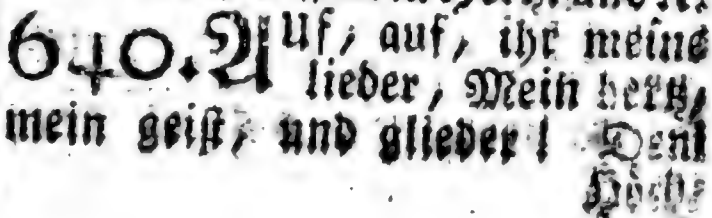 640. Auf, auf, ihr meine
lieder, Mein hertz,
mein geist, und glieder! Dem
Höch-